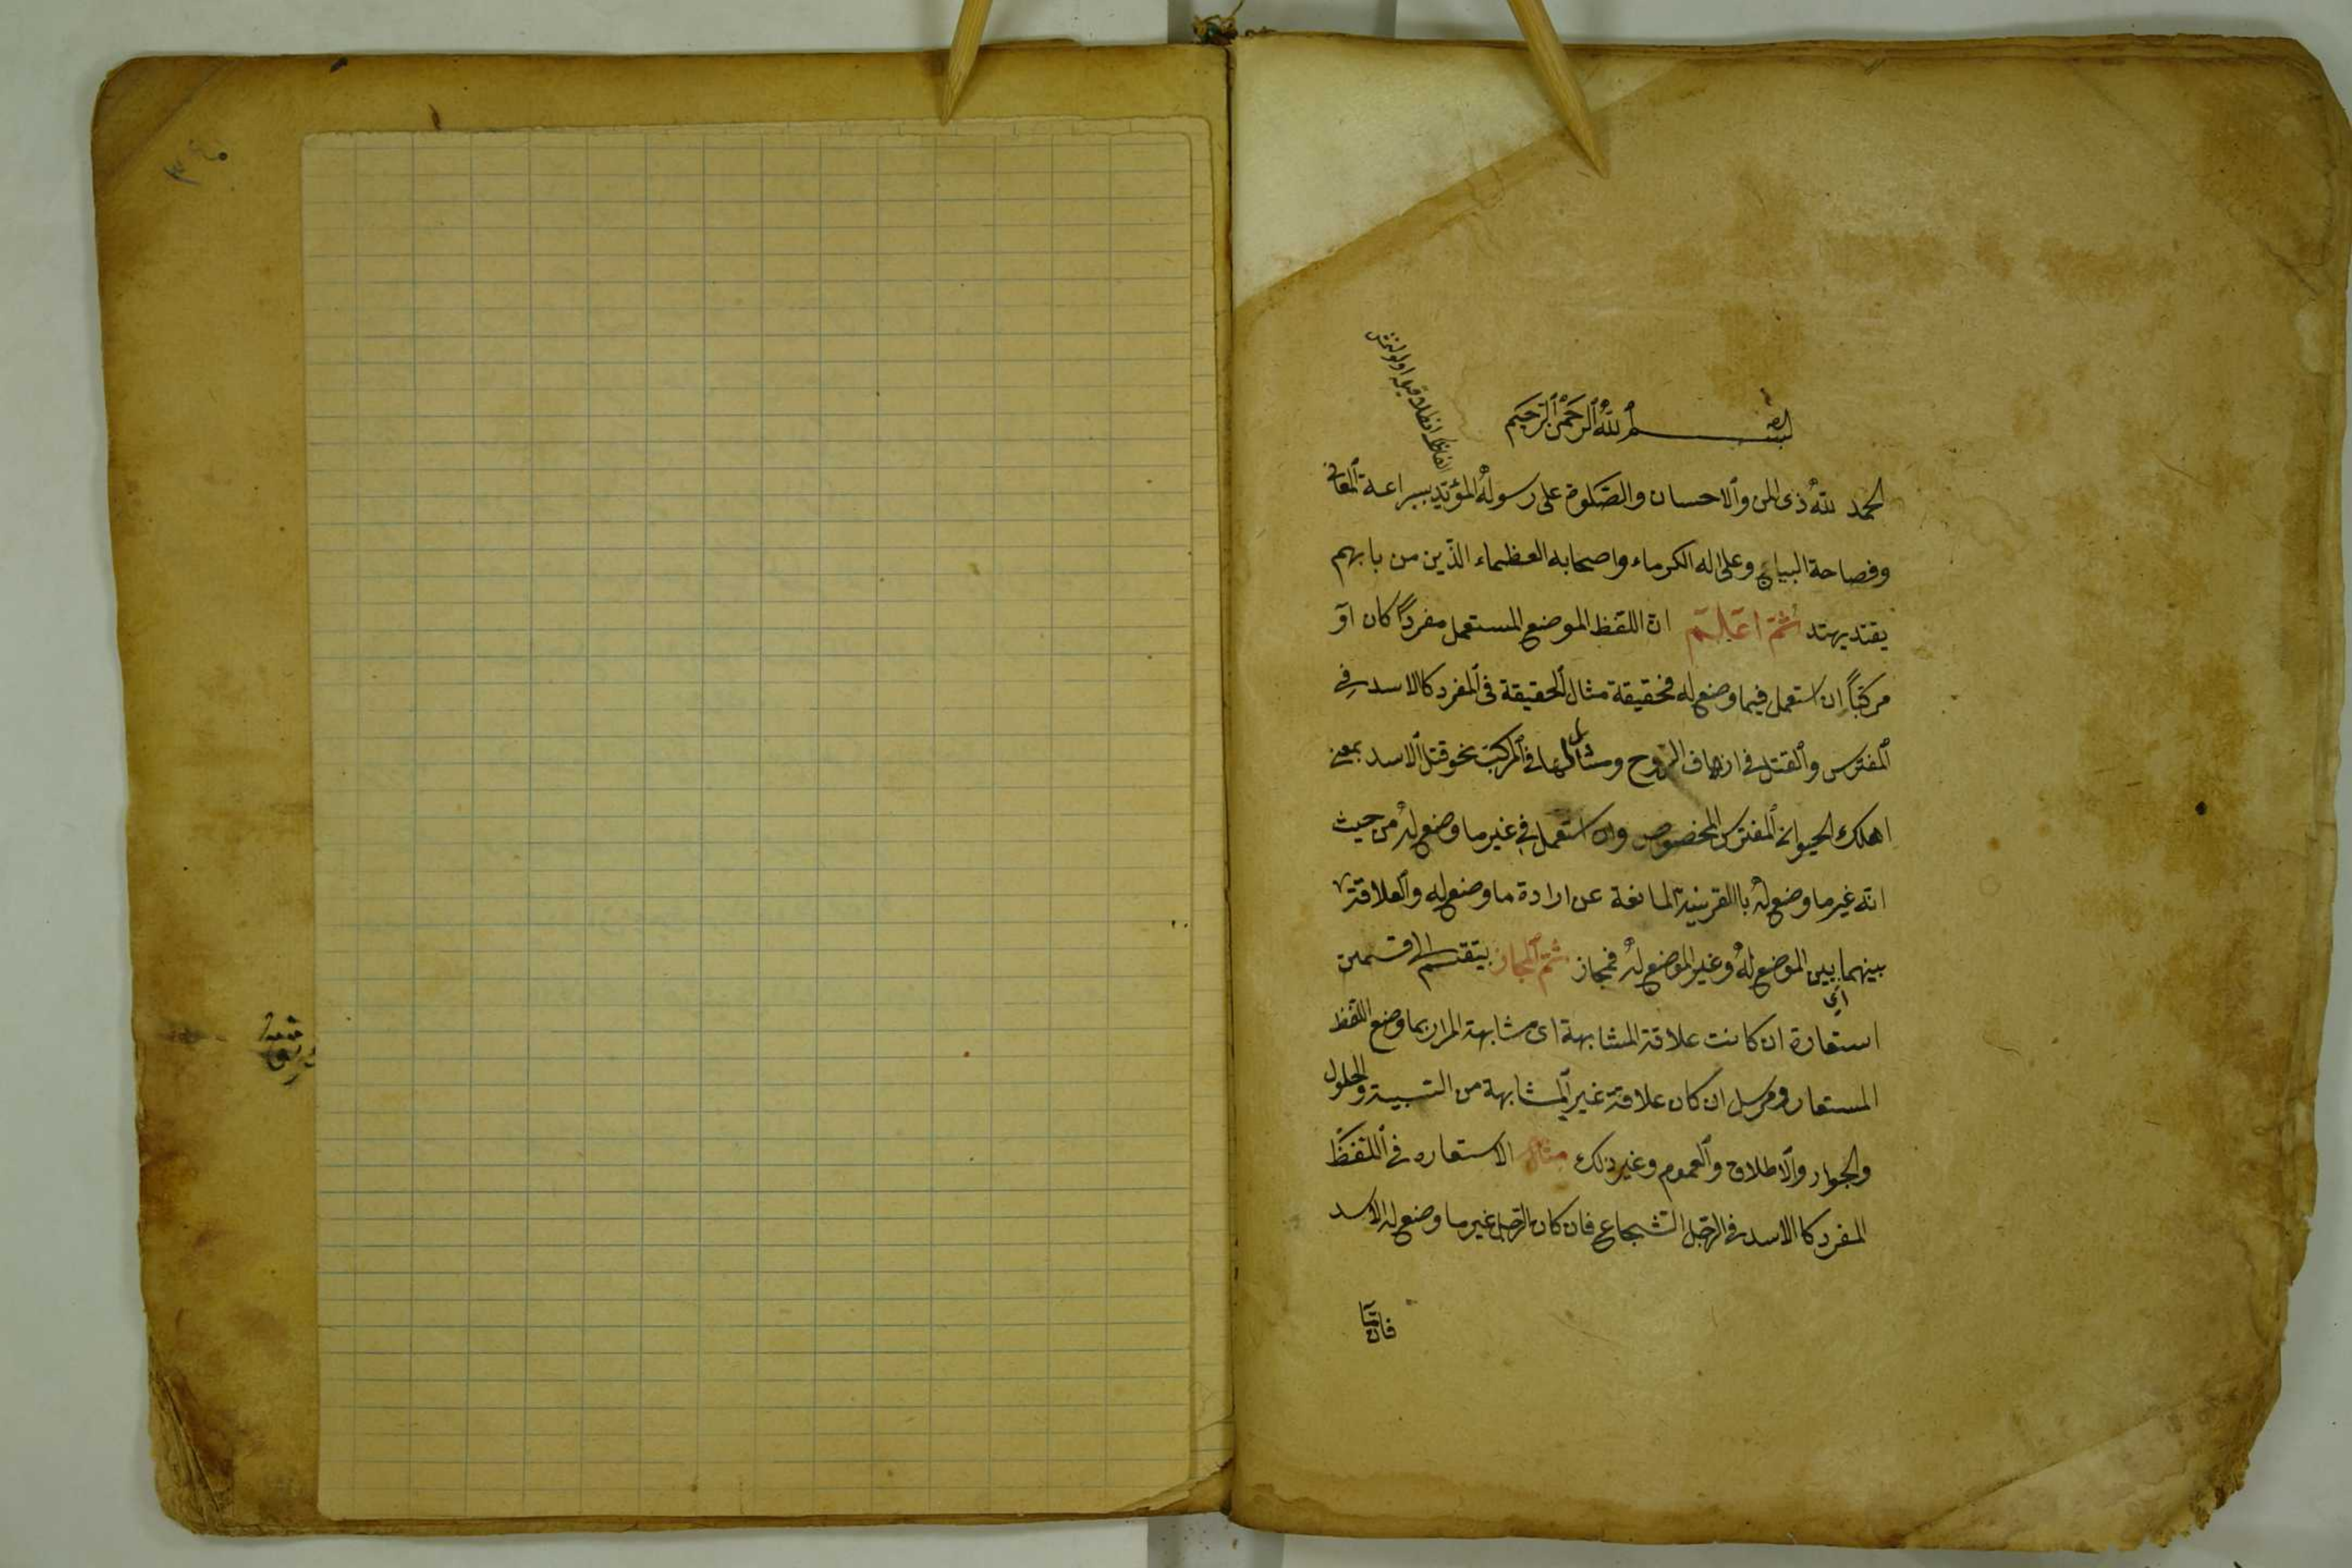 بسم الله الرحمن الرحيم
الحمد لله ذى المن والاحسان والصلوة على رسوله المؤيد ببراعة المعانى
وفصاحة البيان وعلى اله الكرماء واصحابه العظماء الذين من بابهم
يقتد يهتد ثم اعلم ان اللفظ الموضع المستعمل مفرداً كان او
مركباً ان استعمل فيما وضع له فحقيقة مثال الحقيقة فى المفرد كالاسد فى
المفترس والقتل فى ازهاف الروح ومثالها فى المركب نحو قتل الاسد بمعنى
اهلك الحيوان المفترس المخصوص وان استعمل فى غير ما وضع له من حيث
انه غير ما وضع له باالقرينة المانعة عن ارادة ما وضع له والعلاقة
بينهما اى بين الموضع له وغير الموضع له فمجاز ثم المجاز ينقسم الى قسمين
استعارة ان كانت علاقة المشابهة اى مشابهة المراد بما وضع اللفظ
المستعار ومرسل ان كان علاقة غير المشابهة من السببية والحلول
والجوار والاطلاق والعموم وغير ذلك مثال الاستعاره فى اللفظ
المفرد كا الاسد فى الرجل الشجاع فان كان الرجل غير ما وضع له الاسد